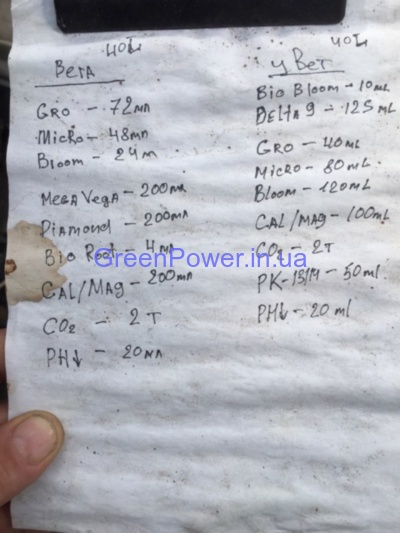 40L
Вега
Gro - 72мл
Micro - 48мл
Bloom - 24м
Mega Vega - 200мл
Diamond - 200мл
Bio Root - 4мл
Cal/Mag - 200мл
CO₂ - 2 Т
PH↓ - 20мл
40L
цвет
Bio Bloom - 10mL
Delta 9 - 125 mL
Gro - 40mL
Micro - 80mL.
Bloom - 120mL
Cal/Mag - 100mL
CO₂ - 2Т
PK-13/14 - 50ml.
PH↓ - 20 ml
GreenPower.in.ua